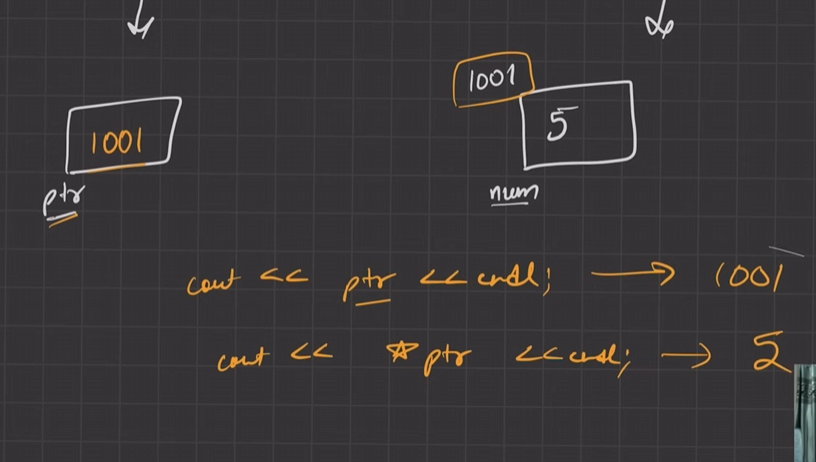 1001
1001 5
ptr num
cout << ptr << endl; → 1001
cout << *ptr << endl; → 5